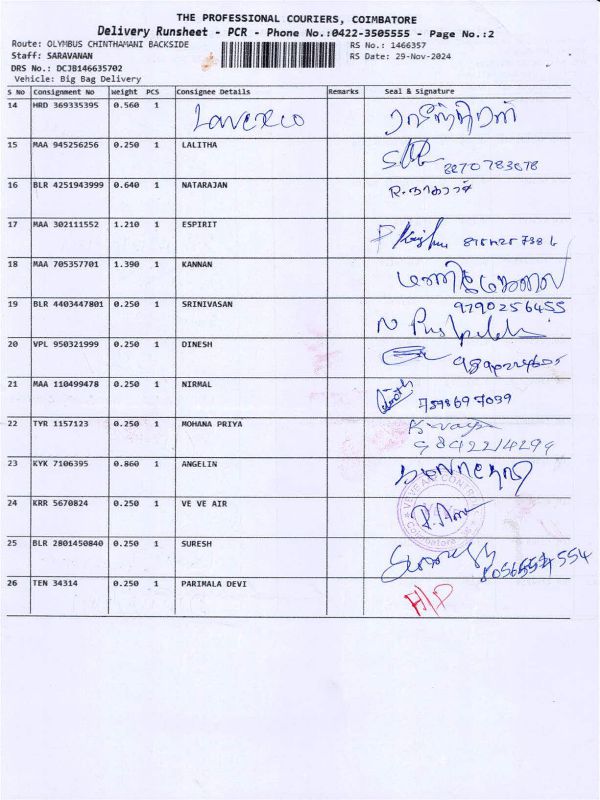 THE PROFESSIONAL COURIERS, COIMBATORE
Delivery Runsheet - PCR - Phone No.:0422-3505555 - Page No.:2
Route: OLYMBUS CHINTHAMANI BACKSIDE RS No.: 1466357
Staff: SARAVANAN RS Date: 29-Nov-2024
DRS No.: DCJB146635702
Vehicle: Big Bag Delivery
S No Consignment No Weight PCS Consignee Details Remarks Seal & Signature
14 HRD 369335395 0.560 1
15 MAA 945256256 0.250 1 LALITHA
16 BLR 4251943999 0.640 1 NATARAJAN
17 MAA 302111552 1.210 1 ESPIRIT
18 MAA 705357701 1.390 1 KANNAN
19 BLR 4403447801 0.250 1 SRINIVASAN 9790256455
20 VPL 950321999 0.250 1 DINESH
21 MAA 110499478 0.250 1 NIRMAL 7598697039
22 TYR 1157123 0.250 1 MOHANA PRIYA
23 KYK 7106395 0.860 1 ANGELIN
24 KRR 5670824 0.250 1 VE VE AIR
25 BLR 2801450840 0.250 1 SURESH
26 TEN 34314 0.250 1 PARIMALA DEVI